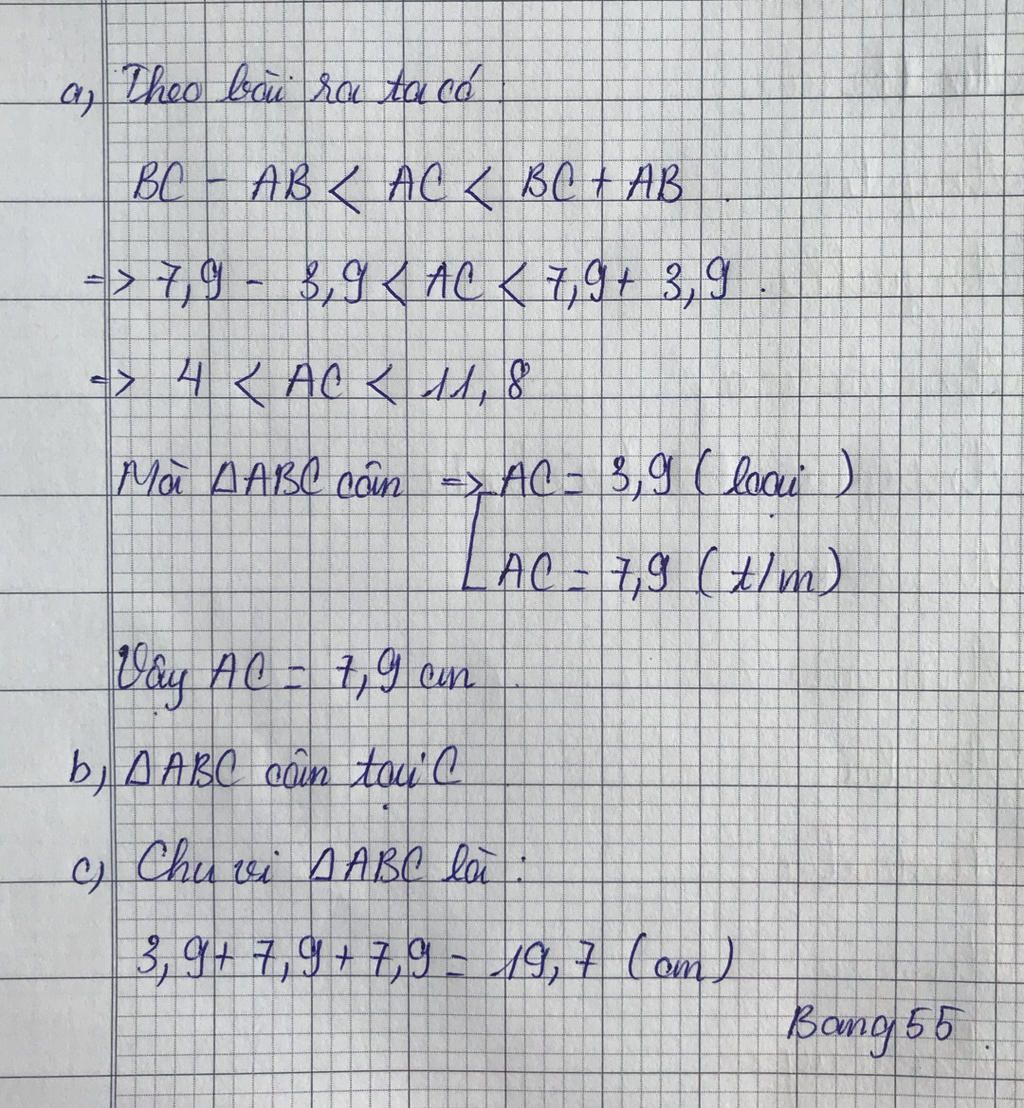 a, Theo bài ra ta có
BC - AB < AC < BC + AB.
=> 7,9 - 3,9 < AC < 7,9 + 3,9.
=> 4 < AC < 11,8
Mà ΔABC cân => [AC = 3,9 (loại)
AC = 7,9 (t/m)
Vậy AC = 7,9 cm.
b, ΔABC cân tại C
c) Chu vi ΔABC là:
3,9 + 7,9 + 7,9 = 19,7 (cm)
Bang55.